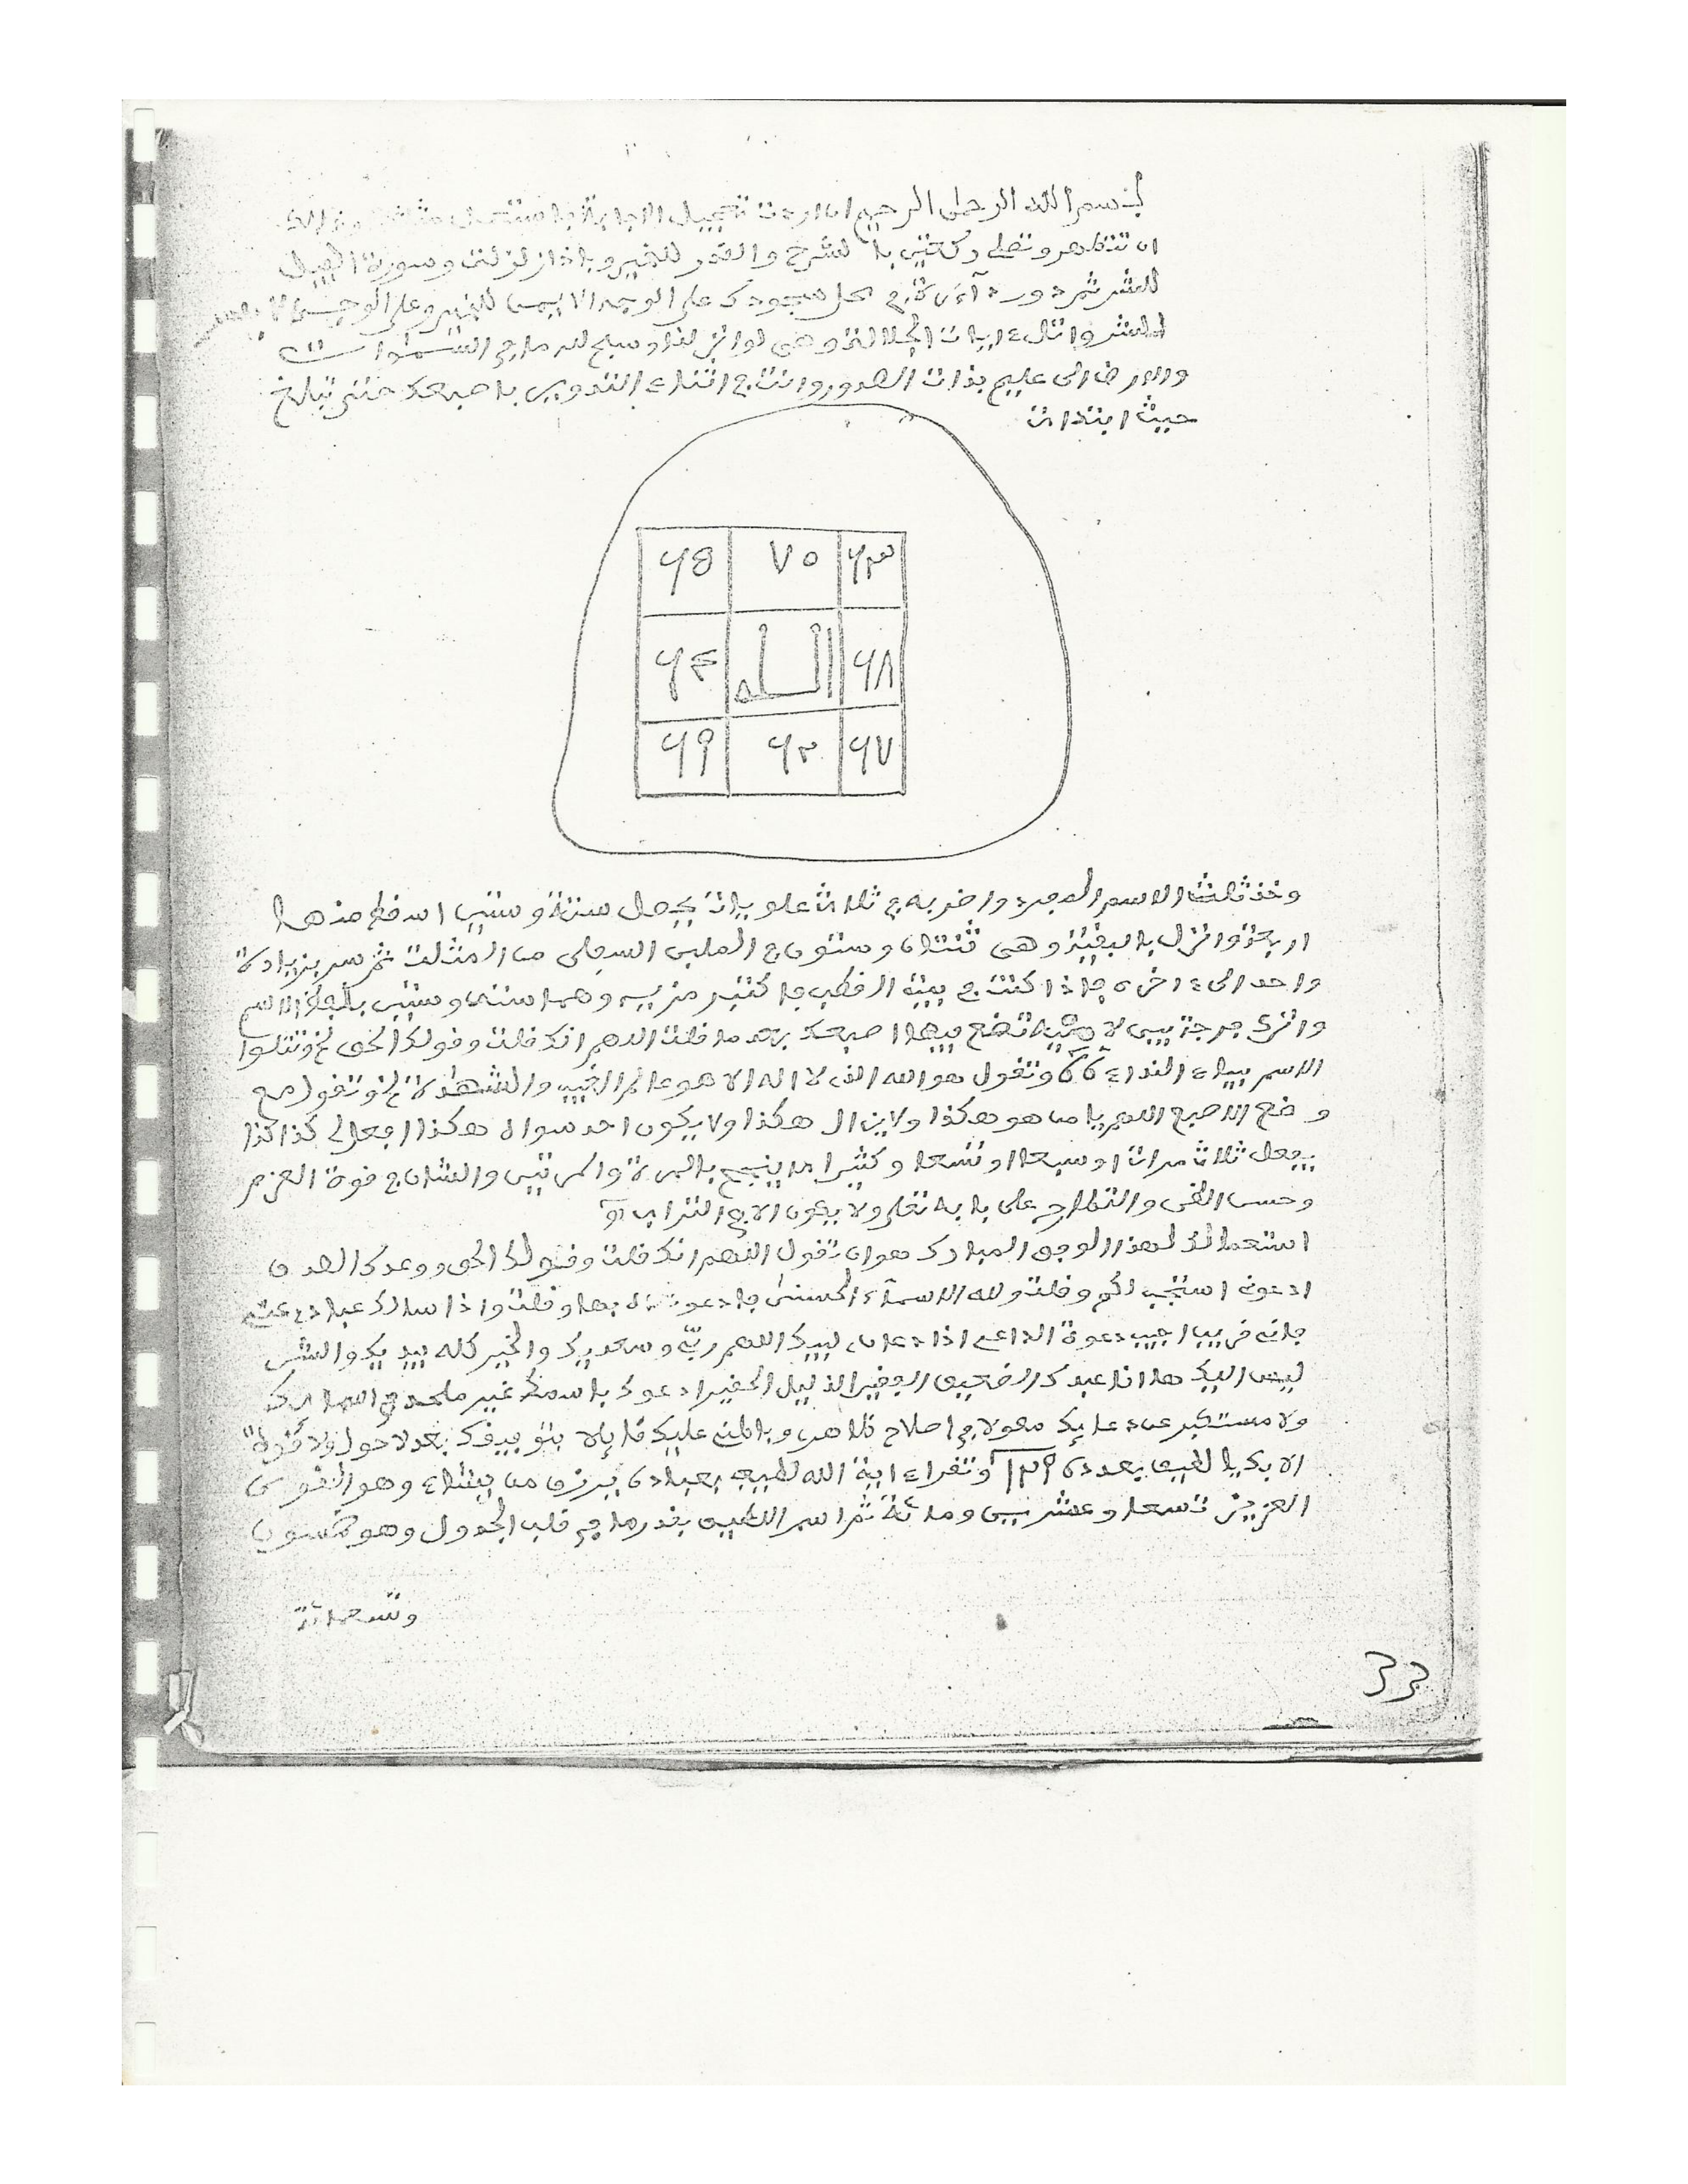 بسم الله الرحمن الرحيم ان اردت تعجيل الاجابة باستعمل
ان تتطهر وتصلي ركعتين بالم نشرح والقدر للخير وباذا زلزلت وسورة الفيل
للشر ثم دور دآئرة في محل سجودك على الوجه الايمن للخير وعلى الوجه
للشر واتل ءايات الجلالة وهي لو انزلنا وسبح لله ما في السموات
والارض الى عليم بذات الصدور وانت في اثناء التدوير باصبعك حتى تبلغ
حيث ابتدات
٦٥ ٧٠ ٦٣
٦٤ الله ٦٨
٦٩ ٦٢ ٦٧
وخذ ثلث الاسم المجرد واضربه في ثلاث علويات يحصل ستة وستين اسقط منها
اربعة وانزل بالبقية وهي ثنتان وستون في الملبن السفلى من المثلث ثم سر بزيادة
واحد الى ءاخره فاذا كنت في بيت القطب فاكتب رمزيه وهما ستة وستين بلفظ الاسم
واترك فرجة بين لاميه تضع فيها اصبعك بعد ما قلت اللهم انك قلت وقولك الحق الخ وتتلوا
الاسم بياء النداء ٦٦ وتقول هو الله الذى لا اله الا هو عالم الغيب والشهدة الخ وتقول مع
وضع الاصبع اللهم يا من هو هكذا ولا يزال هكذا ولا يكون احد سواه هكذا افعل لى كذا كذا
يفعل ثلاث مرات او سبعا او تسعا وكثيرا ما ينجح بالمرة والمرتين والشان في قوة العزم
وحسن الظن والتطارح على بابه تعلى ولا يعون الا في التراب
استعمالنا لهذا الوجق المبارك هو ان تقول اللهم انك قلت وقولك الحق ووعدك الصدق
ادعونى استجب لكم وقلت ولله الاسمآء الحسنى فادعوه بها وقلت واذا سالك عبادى عنى
فانى قريب اجيب دعوة الداعى اذا دعان لبيك اللهم ربى وسعديك والخير كله بيديك والشر
ليس اليك ها انا عبدك الضعيف الفقير الذليل الحقير ادعوك باسمك غير ملحد في اسمائك
ولا مستكبر عن دعائك معولا في اصلاح ظاهرى وباطنى عليك قائلا بتوفيقك بعد لا حول ولا قوة
الا بك يا لطيف بعدد ١٢٩ وتقراء اية الله لطيف بعباده يرزق من يشاء وهو القوى
العزيز تسعا وعشرين ومائة ثم اسم اللطيف بقدر ما في قلب الجدول وهو خمسون
وتسعمائة
33